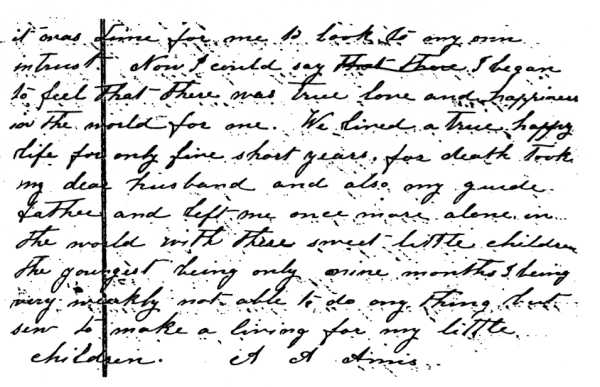 it was time for me to look to my own
intrust. Now I could say that there I began
to feel that there was true love and happiness
in the world for me. We lived a true happy
life for only five short years. for death took
my dear husband and also my guide
father and left me once more alone in
the world with three sweet little children
the youngist being only nine months I being
very weakly not able to do any thing but
sew to make a living for my little
children. A A Amis